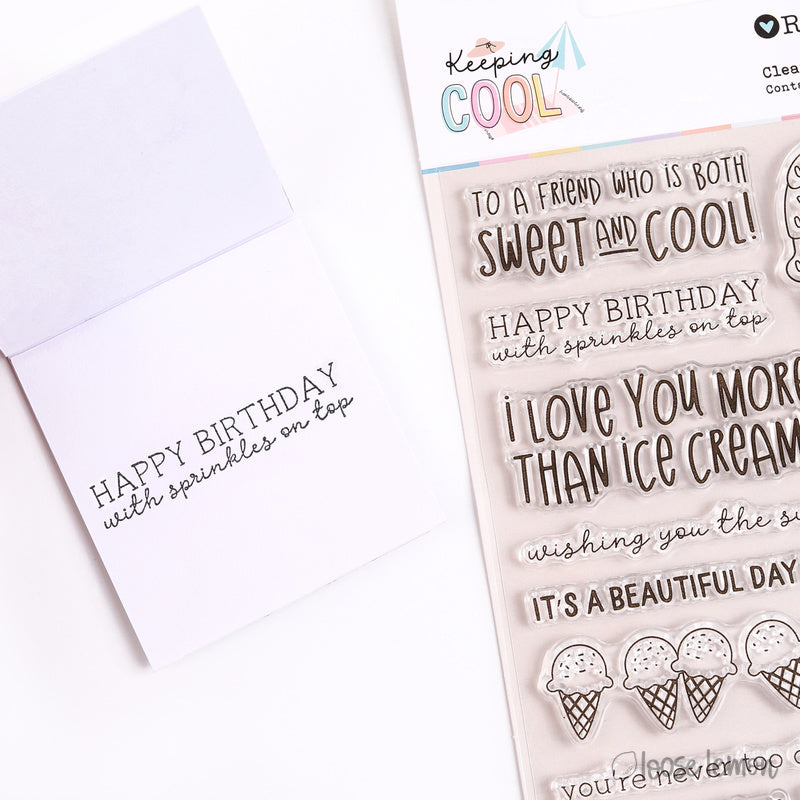 HAPPY BIRTHDAY
with sprinkles on top
Keeping
COOL
TO A FRIEND WHO IS BOTH
SWEET AND COOL!
HAPPY BIRTHDAY
with sprinkles on top
i LOVE YOU MORE
THAN iCE CREAM
wishing you the
IT'S A BEAUTIFUL DAY
you're never too
loose lemon